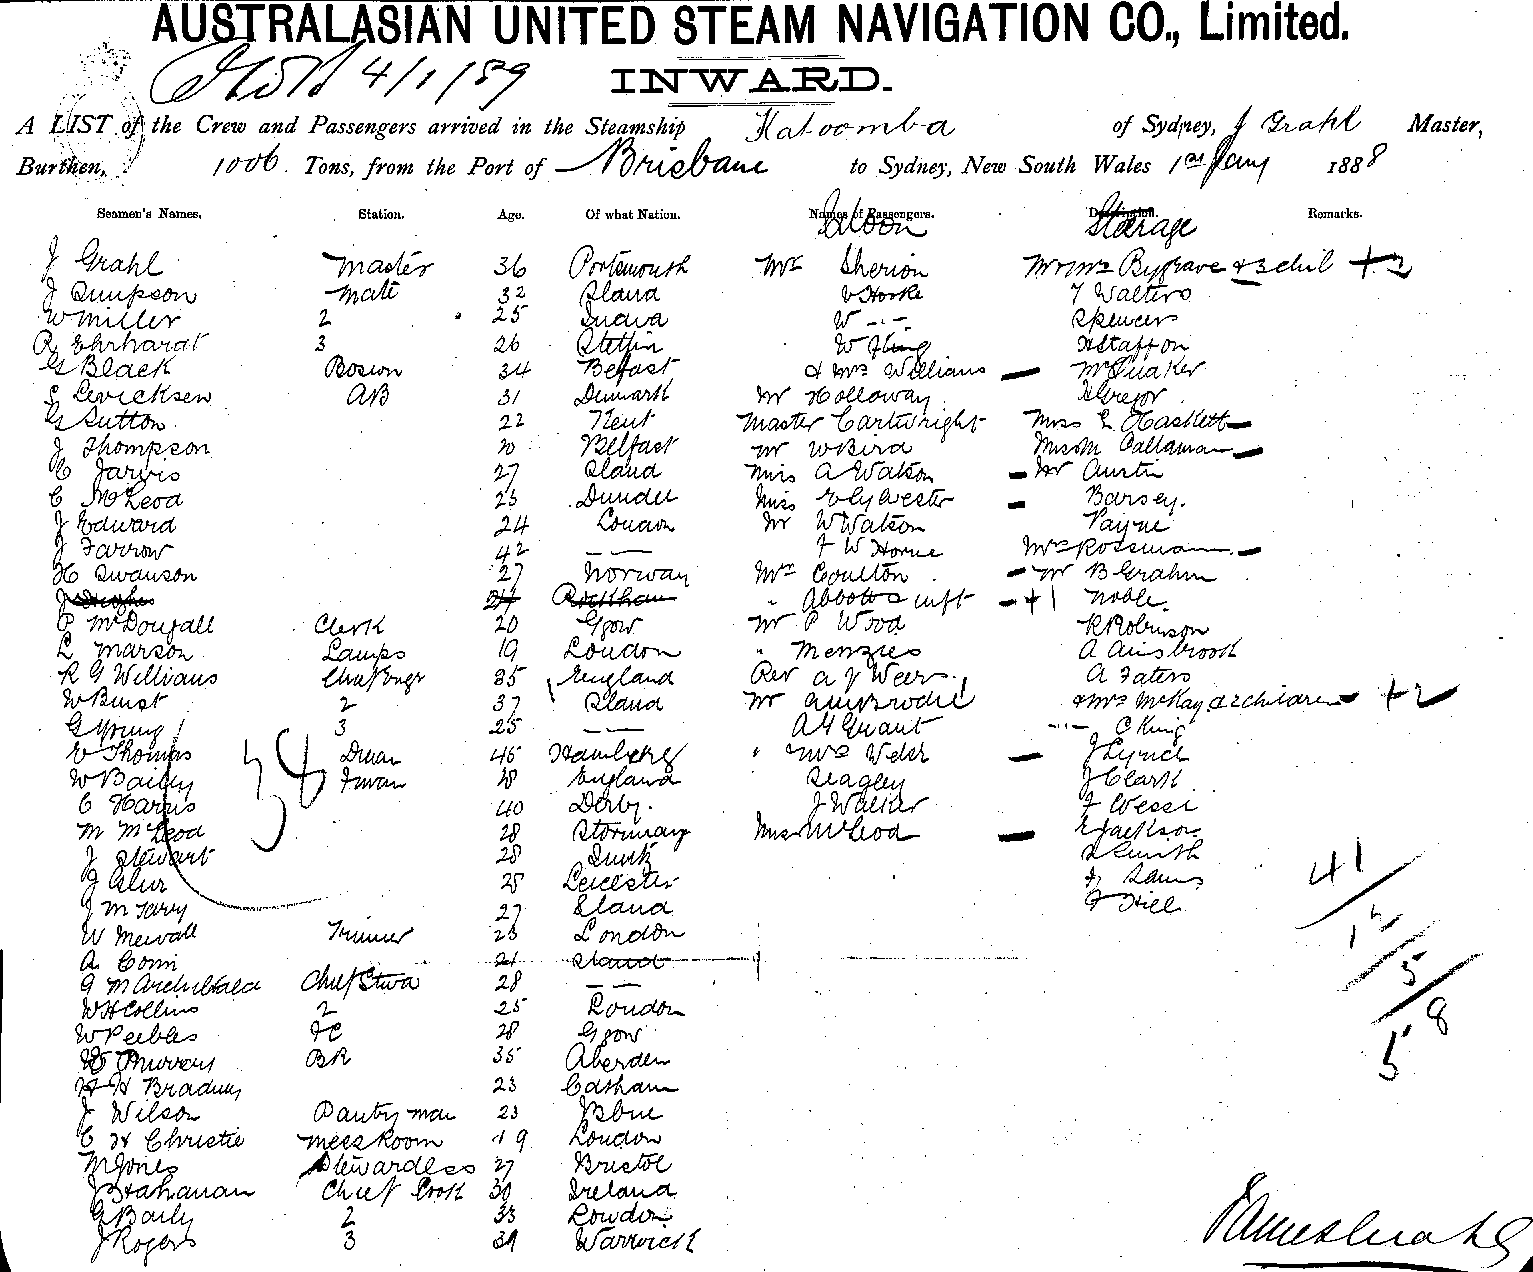 AUSTRALASIAN UNITED STEAM NAVIGATION CO., Limited.
4/1/89 INWARD.
A LIST of the Crew and Passengers arrived in the Steamship Katoomba of Sydney, J Grahl Master,
Burthen, 1006 Tons, from the Port of Brisbane to Sydney, New South Wales 1st Jany 1888
Seamen's Names. Station. Age. Of what Nation. Names of Passengers. Remarks.
Saloon Steerage
J Grahl Master 36 Portsmouth Mr Sherion Mr & Mrs Bygrave & 3 chil + 3
J Simpson Mate 32 Sland V Hooke T Walters
W Miller 2 25 India W - - - Spencers
R Ehrhardt 3 26 Stettin W King H Staffon
G Black Bosion 34 Belfast & Mrs Williams McQuaker
S Levicksen AB 31 Denmark Mr Holloway Gregor
G Sutton 22 Kent Master Cartwright Miss E Haskett
J Thompson 20 Belfast Mr W Bird Miss M Callanan
C Jarvis 27 Sland Miss A Watson Mr Austin
C McLeod 23 Dundee Miss E Sylvester Barsey.
J Edward 24 London Mr W Watson Payne
J Farrow 42 — — F W Horne Mrs Rossmann
H Swanson 27 Norway Mrs Coulton Mr B Grahm
J Hughes 24 Rockham " Abbott & inft + 1 Noble.
P McDougall Clerk 20 Ggow Mr P Wood R Robinson
L Marson Lamps 19 London " Menzies A Ainsbrook
R G Williams Chief Engr 35 England Rev A J Weers A Faters
W Buist 2 37 Sland Mr Brodie & Mrs McKay & 2 children + 2
G Young 3 25 — — A G Grant - - - C King
C Thomas Dman 45 Hamberg " Mrs Weir J Lynch
W Baily Fman 28 England Seagley J Clark
C Harris 40 Derby. J Walker F Wessi
M McLeod 28 Stornway Miss McLeod E Jackson
34
J Stewart 28 Smith
J 25 Leicester F Sams
J McTavy 27 Sland F Hill
W Mewall Trimmer 23 London
A Conn 21 Sland
G M Archibald Chief Stwd 28 — —
W H Collins 2 25 London
W Peebles FC 28 Ggow
Murrey BR 35 Aberden
H H Bradney 23 Eastham
J Wilson Pantry man 23
C H Christie Mess Room 19 London
M Jones Stewardess 27 Bristol
J Stahanan Chief Cook 30 Ireland
G Baily 2 33 Lowdon
J Rogers 3 39 Warwick
41
12
5
58